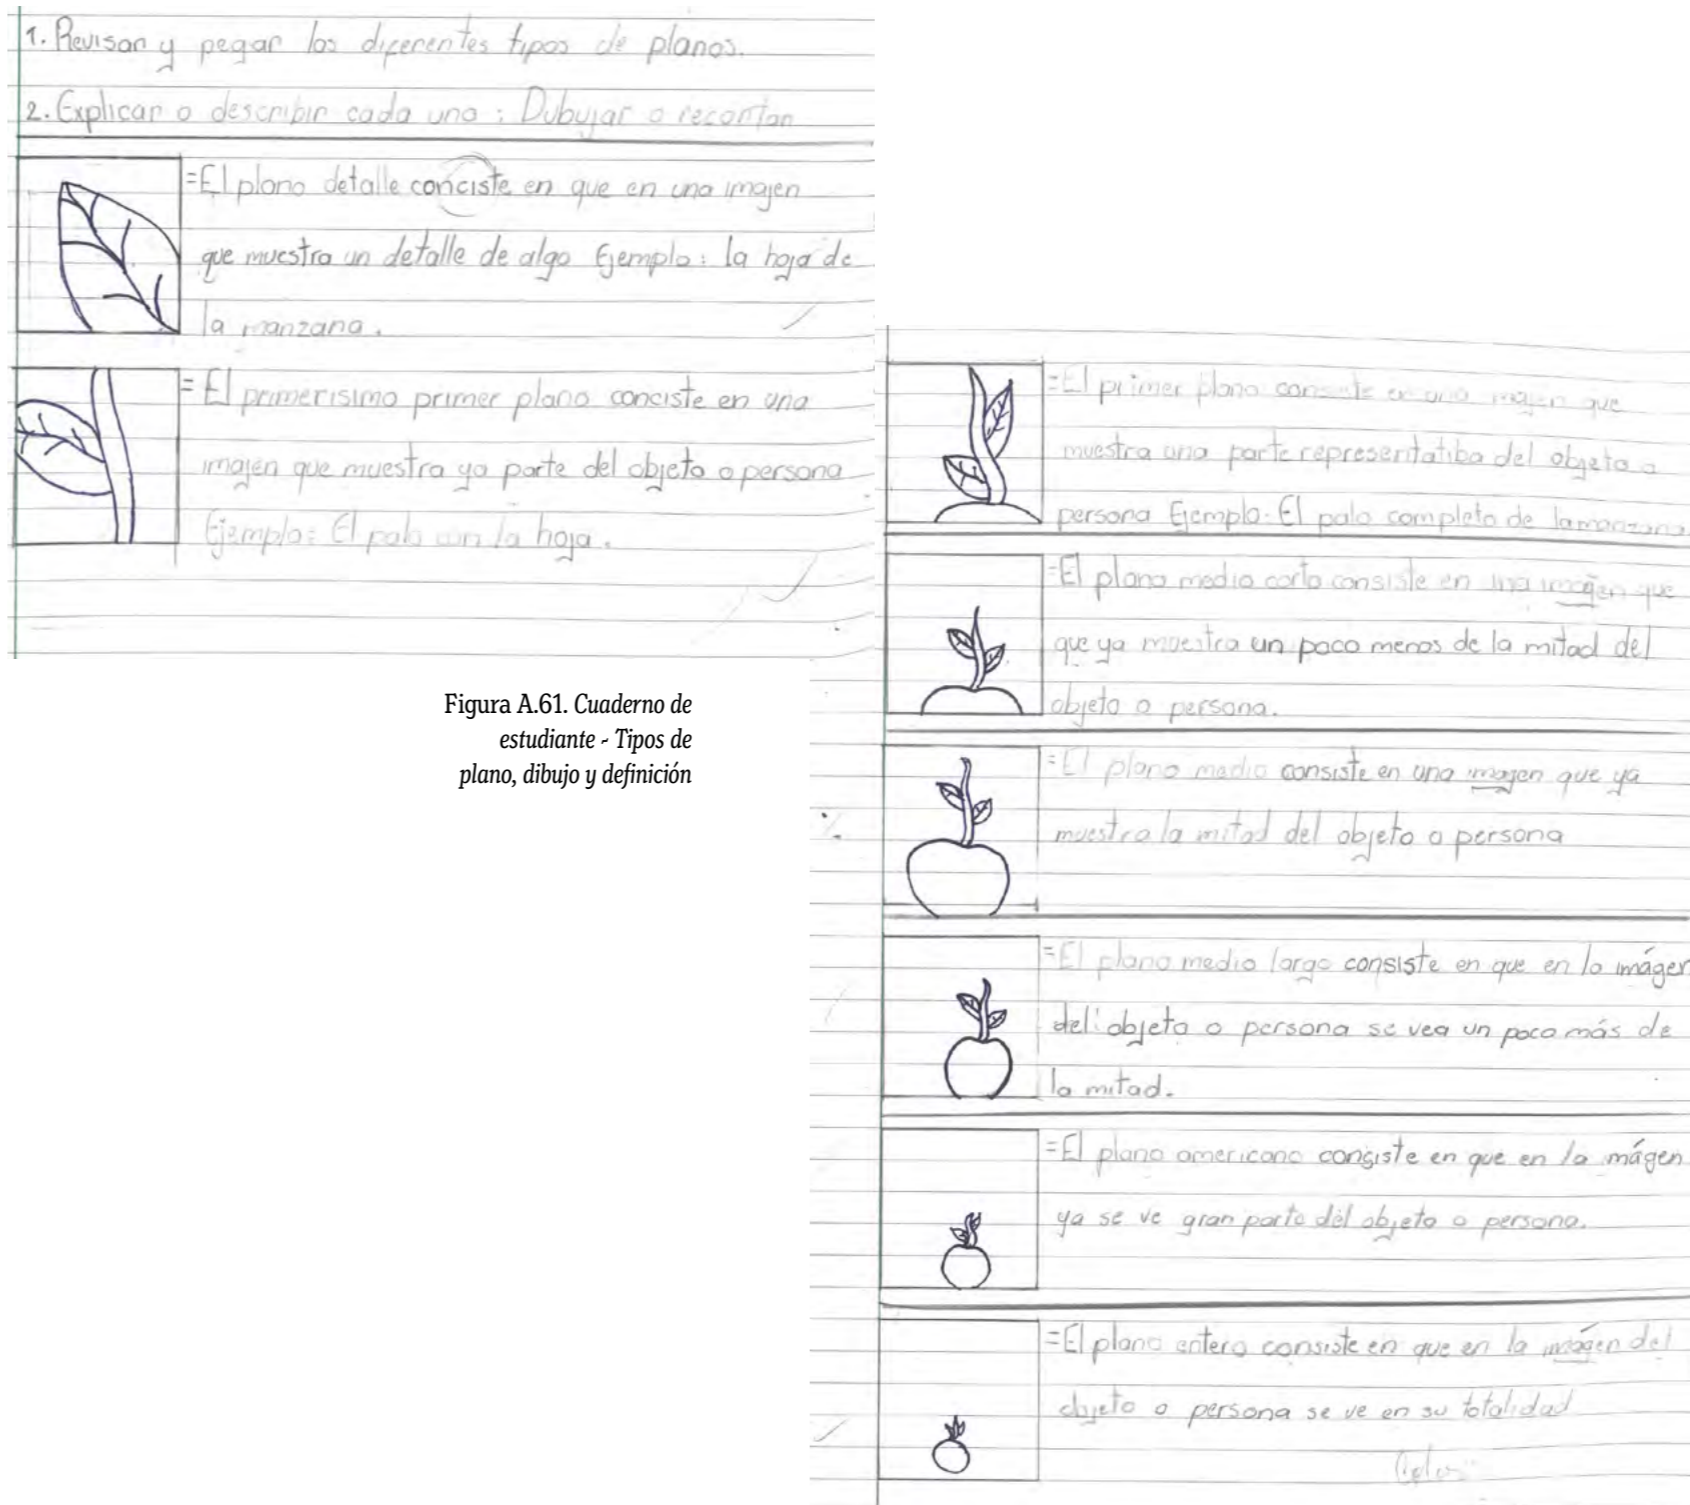 1. Revisar y pegar los diferentes tipos de planos.
2. Explicar o describir cada uno : Dubujar o recortar
=El plano detalle conciste en que en una imajen
que muestra un detalle de algo Ejemplo: la hoja de
la manzana.
= El primerisimo primer plano conciste en una
imajen que muestra ya parte del objeto o persona
Ejemplo: El palo con la hoja.
Figura A.61. Cuaderno de
estudiante - Tipos de
plano, dibujo y definición
=El primer plano consiste en una imajen que
muestra una parte representatiba del objeto o
persona Ejemplo: El palo completo de la manzana.
=El plano medio corto consiste en una imagen que
que ya muestra un poco menos de la mitad del
objeto o persona.
=El plano medio consiste en una imagen que ya
muestra la mitad del objeto o persona
=El plano medio largo consiste en que en la imágen
del objeto o persona se vea un poco más de
la mitad.
=El plano americano consiste en que en la imágen
ya se ve gran parte del objeto o persona.
=El plano entero consiste en que en la imágen del
objeto o persona se ve en su totalidad